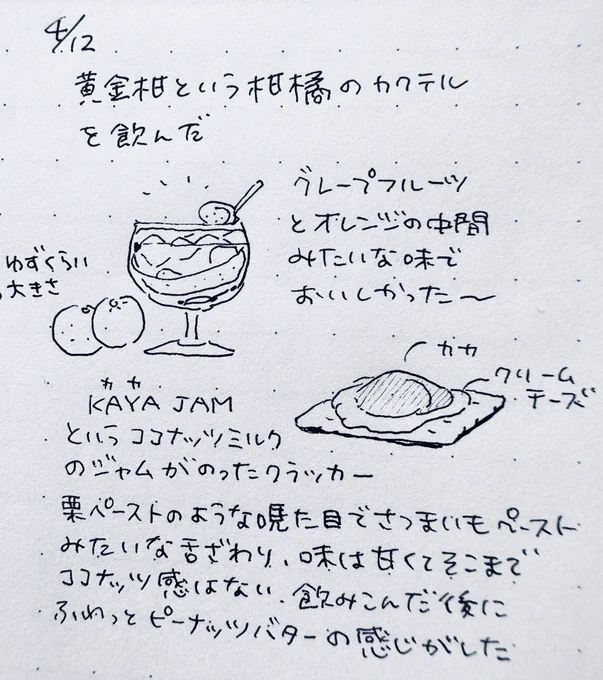 4/12
黄金柑という柑橘のカクテル
を飲んだ
グレープフルーツ
とオレンジの中間
みたいな味で
おいしかった〜
ゆずくらい
の大きさ
カヤ
クリーム
チーズ
カヤ
KAYA JAM
というココナッツミルク
のジャムがのったクラッカー
栗ペーストのような見た目でさつまいもペースト
みたいな舌ざわり、味は甘くてそこまで
ココナッツ感はない、飲みこんだ後に
ふわっとピーナッツバターの感じがした